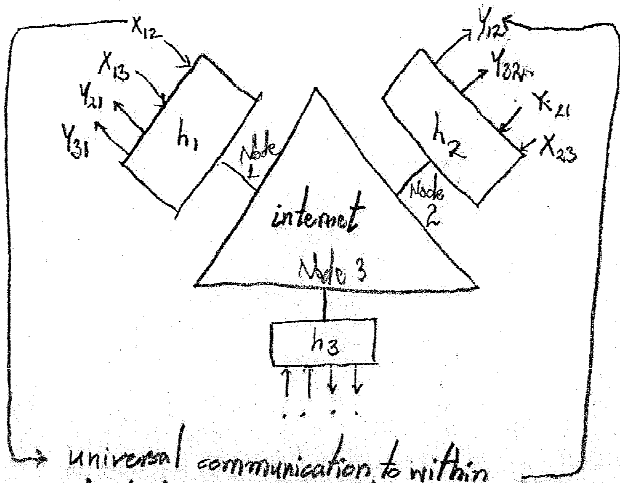 X12
X13
Y21
Y31
h1
Node
1
Y12
Y32
X21
X23
h2
Node
2
internet
Node 3
h3
universal communication to within